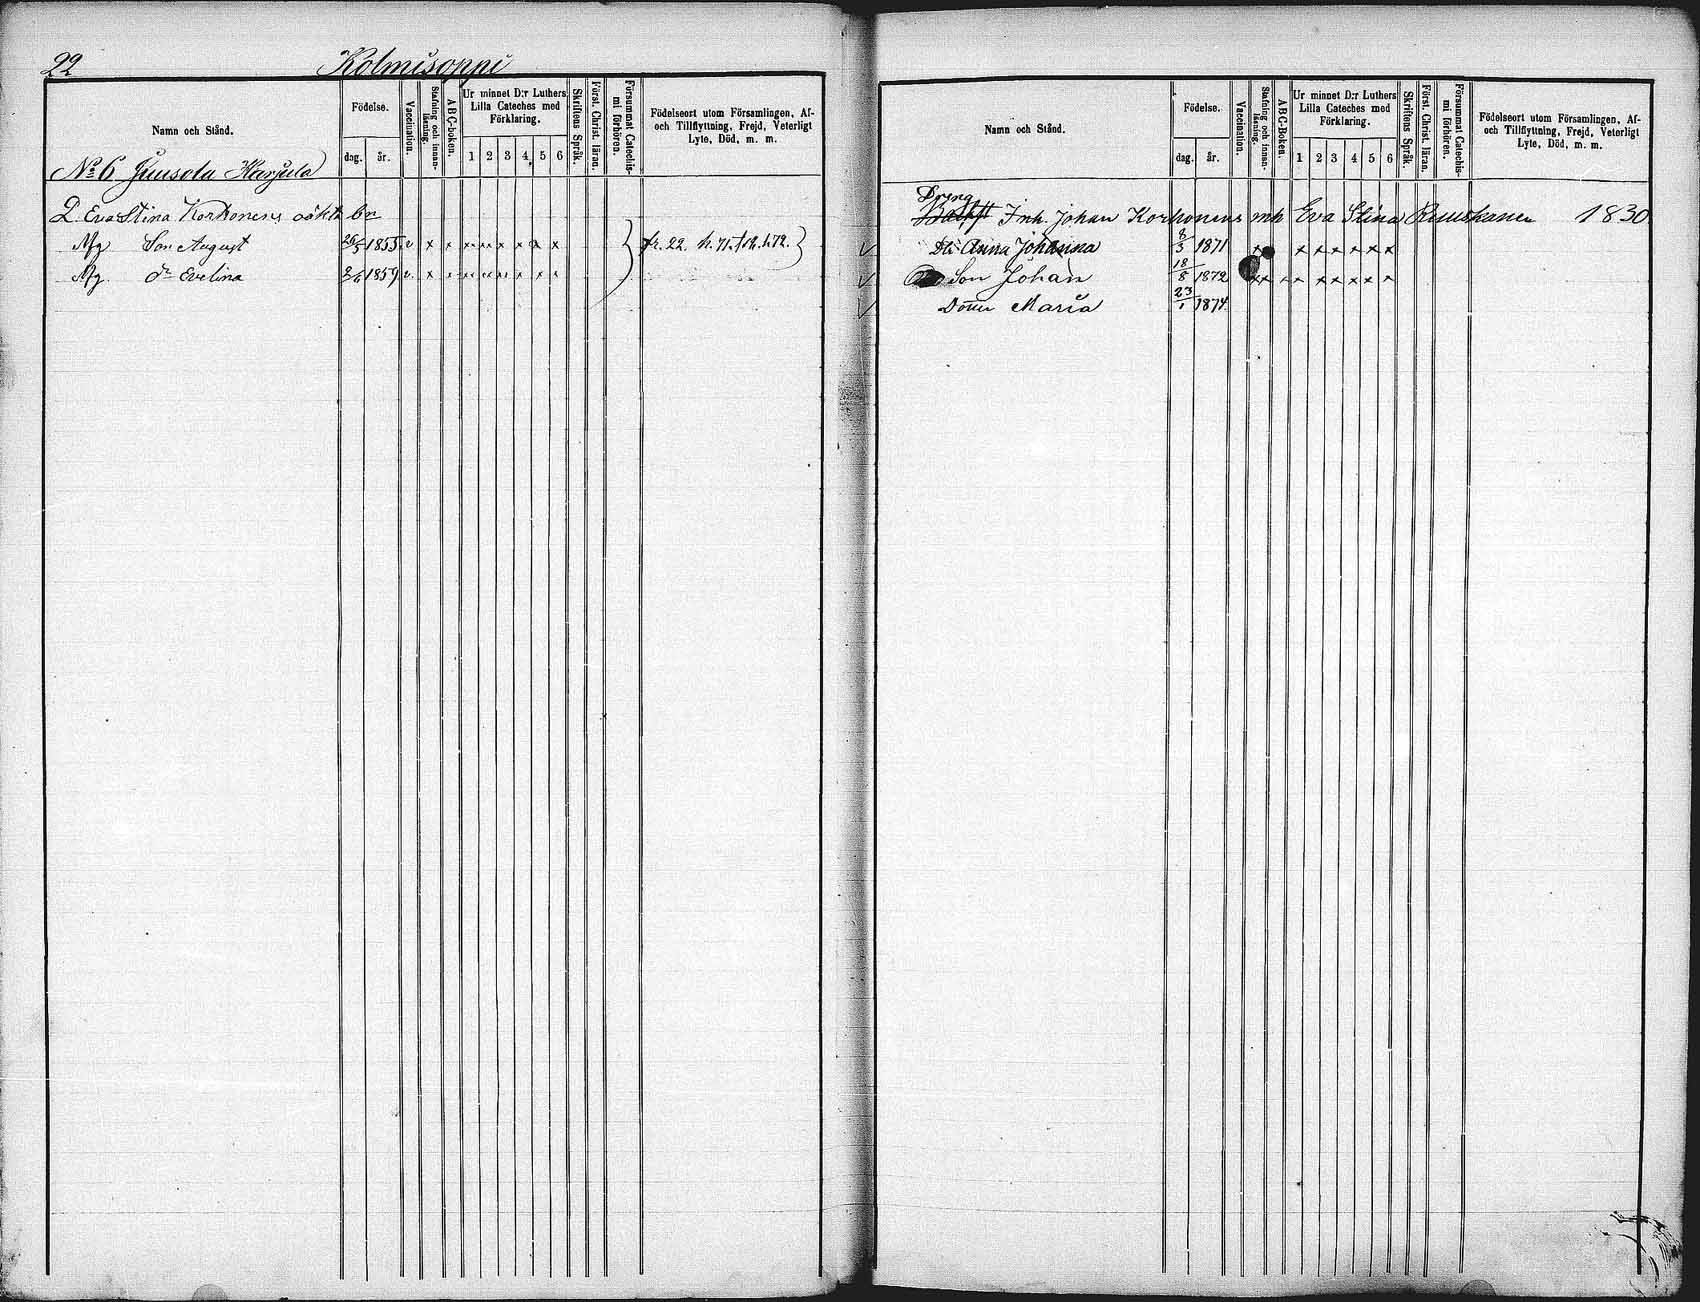 22 Kolmisoppi
Namn och Stånd.
Födelse.
dag. år.
Vaccination.
Stafning och innan-läsning.
A B C-boken.
Ur minnet D:r Luthers
Lilla Cateches med
Förklaring.
1 2 3 4 5 6
Skriftens Språk.
Först. Christ. läran.
Försummat Catechis-
mi förhören.
Födelseort utom Församlingen, Af-
och Tillflyttning, Frejd, Veterligt
Lyte, Död, m. m.
No 6 Juusola Harjula
Eva Stina Korhonens oäkta bn
Son August 26/5 1855 v x x x x x x x x
dr Evelina 2/6 1859 v x x x x x x x x
fr. 22. h. 71. h. 72.
Namn och Stånd.
Födelse.
dag. år.
Vaccination.
Stafning och innan-
läsning.
A B C-Boken.
Ur minnet D:r Luthers
Lilla Cateches med
Förklaring.
1 2 3 4 5 6
Skriftens Språk.
Först. Christ. läran.
Försummat Catechis-
mi förhören.
Födelseort utom Församlingen, Af-
och Tillflyttning, Frejd, Veterligt
Lyte, Död, m. m.
Dreng
Inh. Johan Korhonens mh Eva Stina Ruuskanen 1830
Dr Anna Johanna 8/3 1871 x x x x x x
Son Johan 18/8 1872 x x x x x x x x x
Dotter Maria 23/1 1874